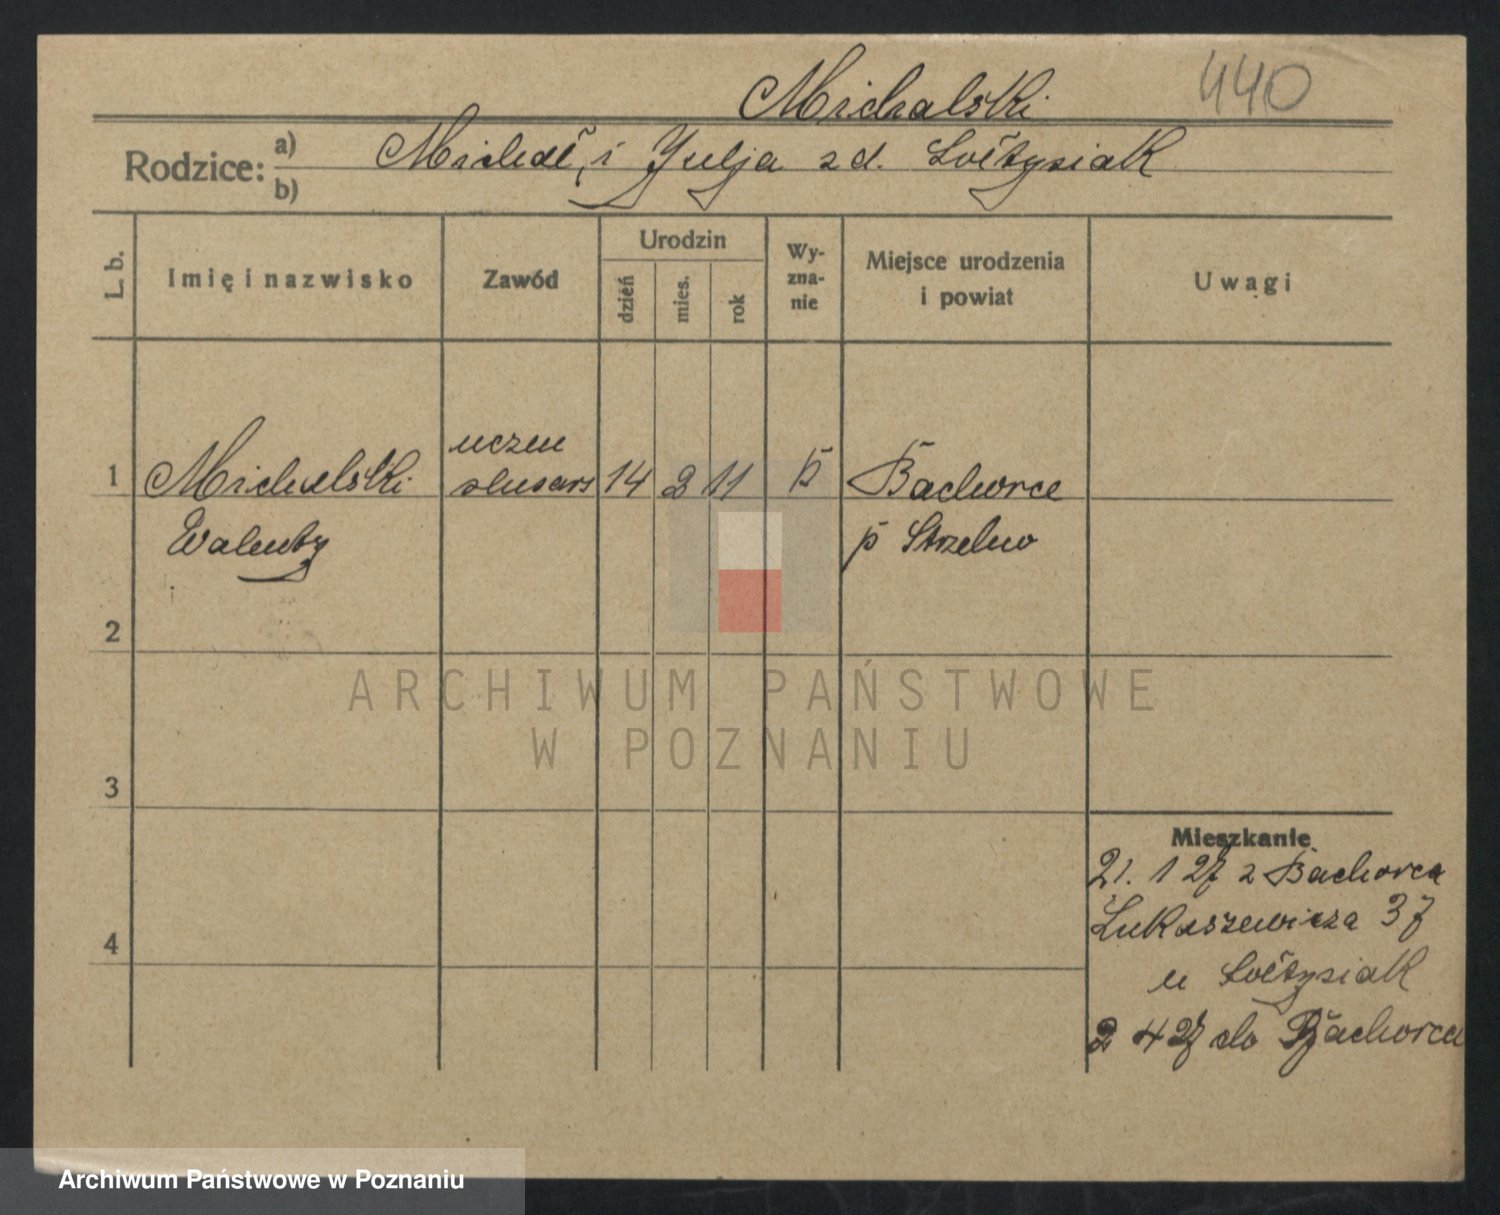 440
Michalski
Rodzice: a) Michał, i Julja zd. Sołtysiak
b)
L. b.
Imię i nazwisko
Zawód
Urodzin
dzień
mies.
rok
Wy-
zna-
nie
Miejsce urodzenia
i powiat
Uwagi
uczeń
1 Michalski ślusars 14 2 11 k Bachorce
Walenty p Strzelno
2
3
4
Mieszkanie
21. 1 27 z Bachorca
Łukaszewicza 37
u Sołtysiak
2 4 27 do Bachorca
ARCHIWUM PAŃSTWOWE
W POZNANIU
Archiwum Państwowe w Poznaniu